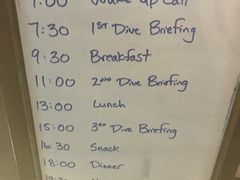 7:00 Wake up Call
7:30 1ST Dive Briefing
9:30 Breakfast
11:00 2ND Dive Briefing
13:00 Lunch
15:00 3RD Dive Briefing
16:30 Snack
18:00 Dinner